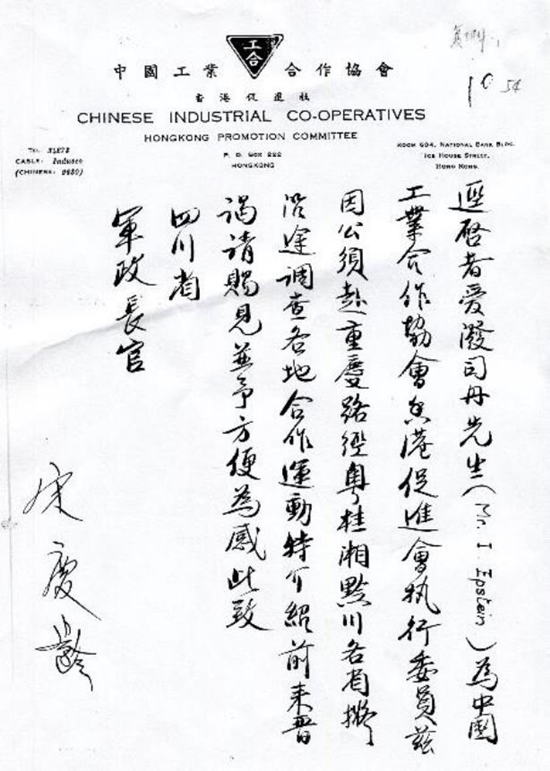 工合
中國工業合作協會
香港促進社
CHINESE INDUSTRIAL CO-OPERATIVES
HONGKONG PROMOTION COMMITTEE
P. O. BOX 222
HONGKONG
TEL. 
CABLE: Indusco
(CHINESE: )
ROOM 604, NATIONAL BANK BLDG.
ICE HOUSE STREET,
HONG KONG.
54
逕啓者愛潑司丹先生(Mr. I. Epstein)為中國
工業合作協會香港促進會執行委員茲
因公須赴重慶路經粵桂湘黔川各省擬
沿途調查各地合作運動特介紹前來晋
謁請賜見並予方便為感此致
四川省
軍政長官
宋慶齡